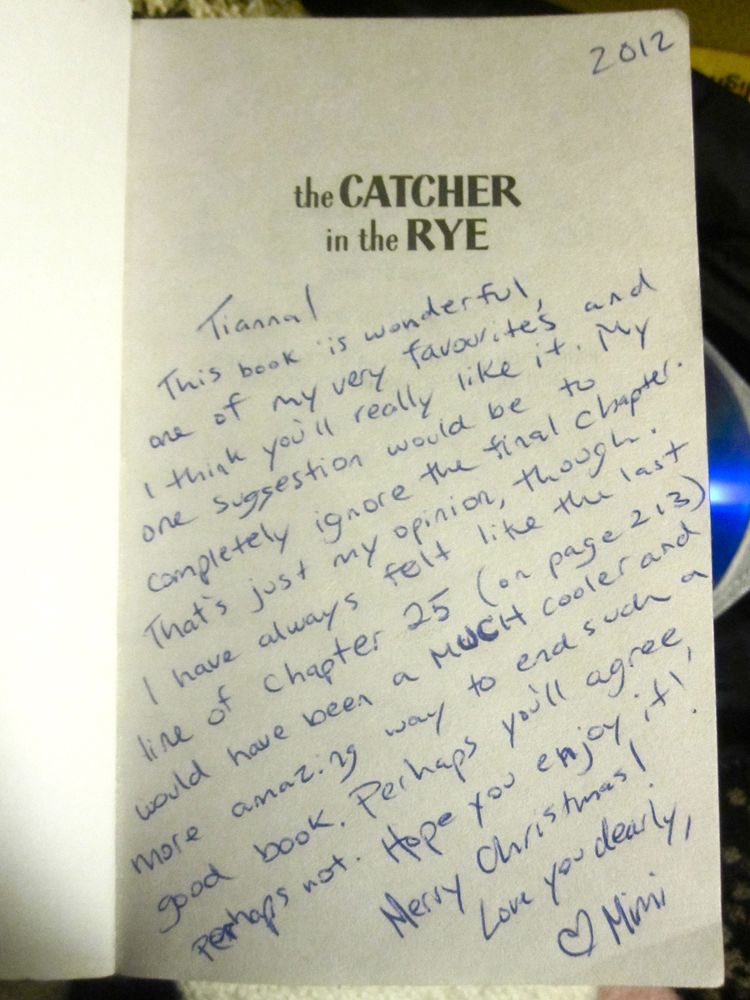 2012
the CATCHER
in the RYE
Tianna!
This book is wonderful,
one of my very favourites and
I think you'll really like it. My
one suggestion would be to
completely ignore the final chapter.
That's just my opinion, though.
I have always felt like the last
line of Chapter 25 (on page 213)
would have been a MUCH cooler and
more amazing way to end such a
good book. Perhaps you'll agree,
perhaps not. Hope you enjoy it!
Merry Christmas!
Love you dearly,
♡ Mimi